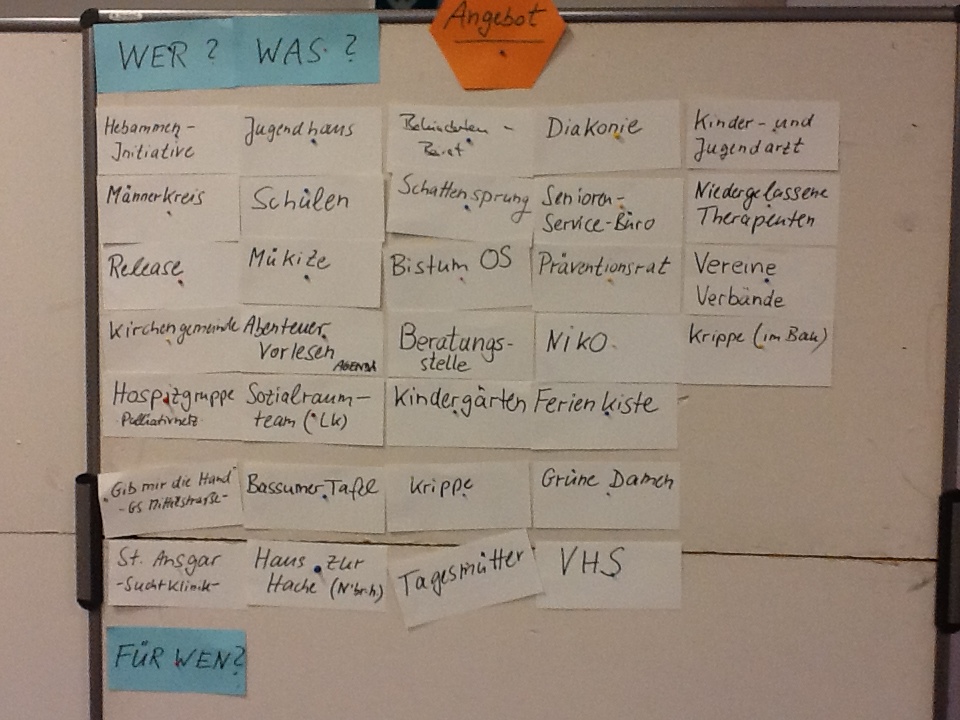 Angebot
WER? WAS?
Hebammen-
Initiative
Jugendhaus
Behinderten-
Beirat
Diakonie
Kinder- und
Jugendarzt
Männerkreis
Schulen
Schattensprung
Senioren-
Service-Büro
Niedergelassene
Therapeuten
Release
Mükize
Bistum OS
Präventionsrat
Vereine
Verbände
Kirchengemeinde
Abenteuer
Vorlesen
AGENDA
Beratungs-
stelle
NIKO
Krippe (im Bau)
Hospizgruppe
Palliativnetz
Sozialraum-
team (LK)
Kindergärten
Ferienkiste
"Gib mir die Hand"
-GS Mittelstraße-
Bassumer Tafel
Krippe
Grüne Damen
St. Ansgar
-Suchtklinik-
Haus zur
Hache (N'br.h.)
Tagesmütter
VHS
FÜR WEN?